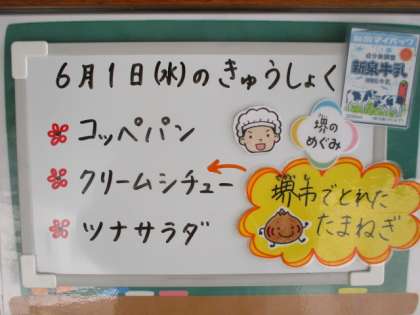 6月1日(水)のきゅうしょく
コッペパン
クリームシチュー
ツナサラダ
堺の
めぐみ
堺市でとれた
たまねぎ
新泉牛乳